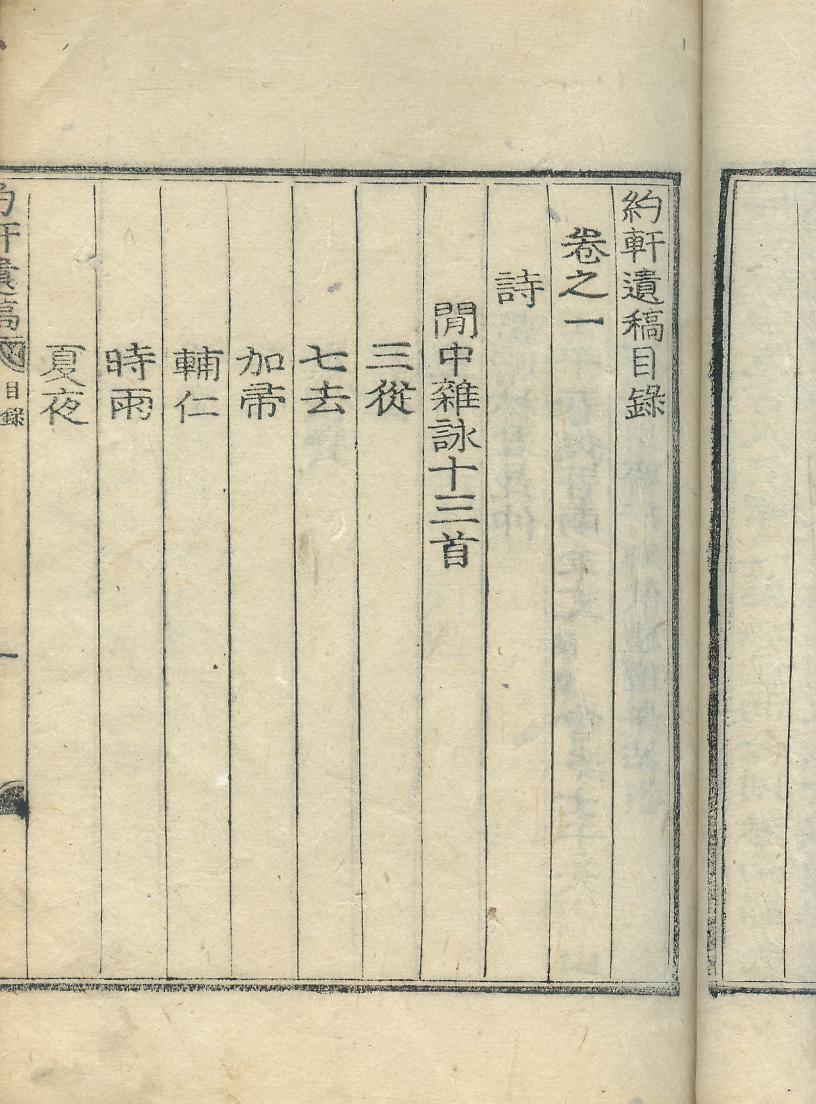 約軒遺稿目錄
卷之一
詩
閒中雜詠十三首
三從
七去
加帚
輔仁
時雨
夏夜
約軒遺稿 目錄 一